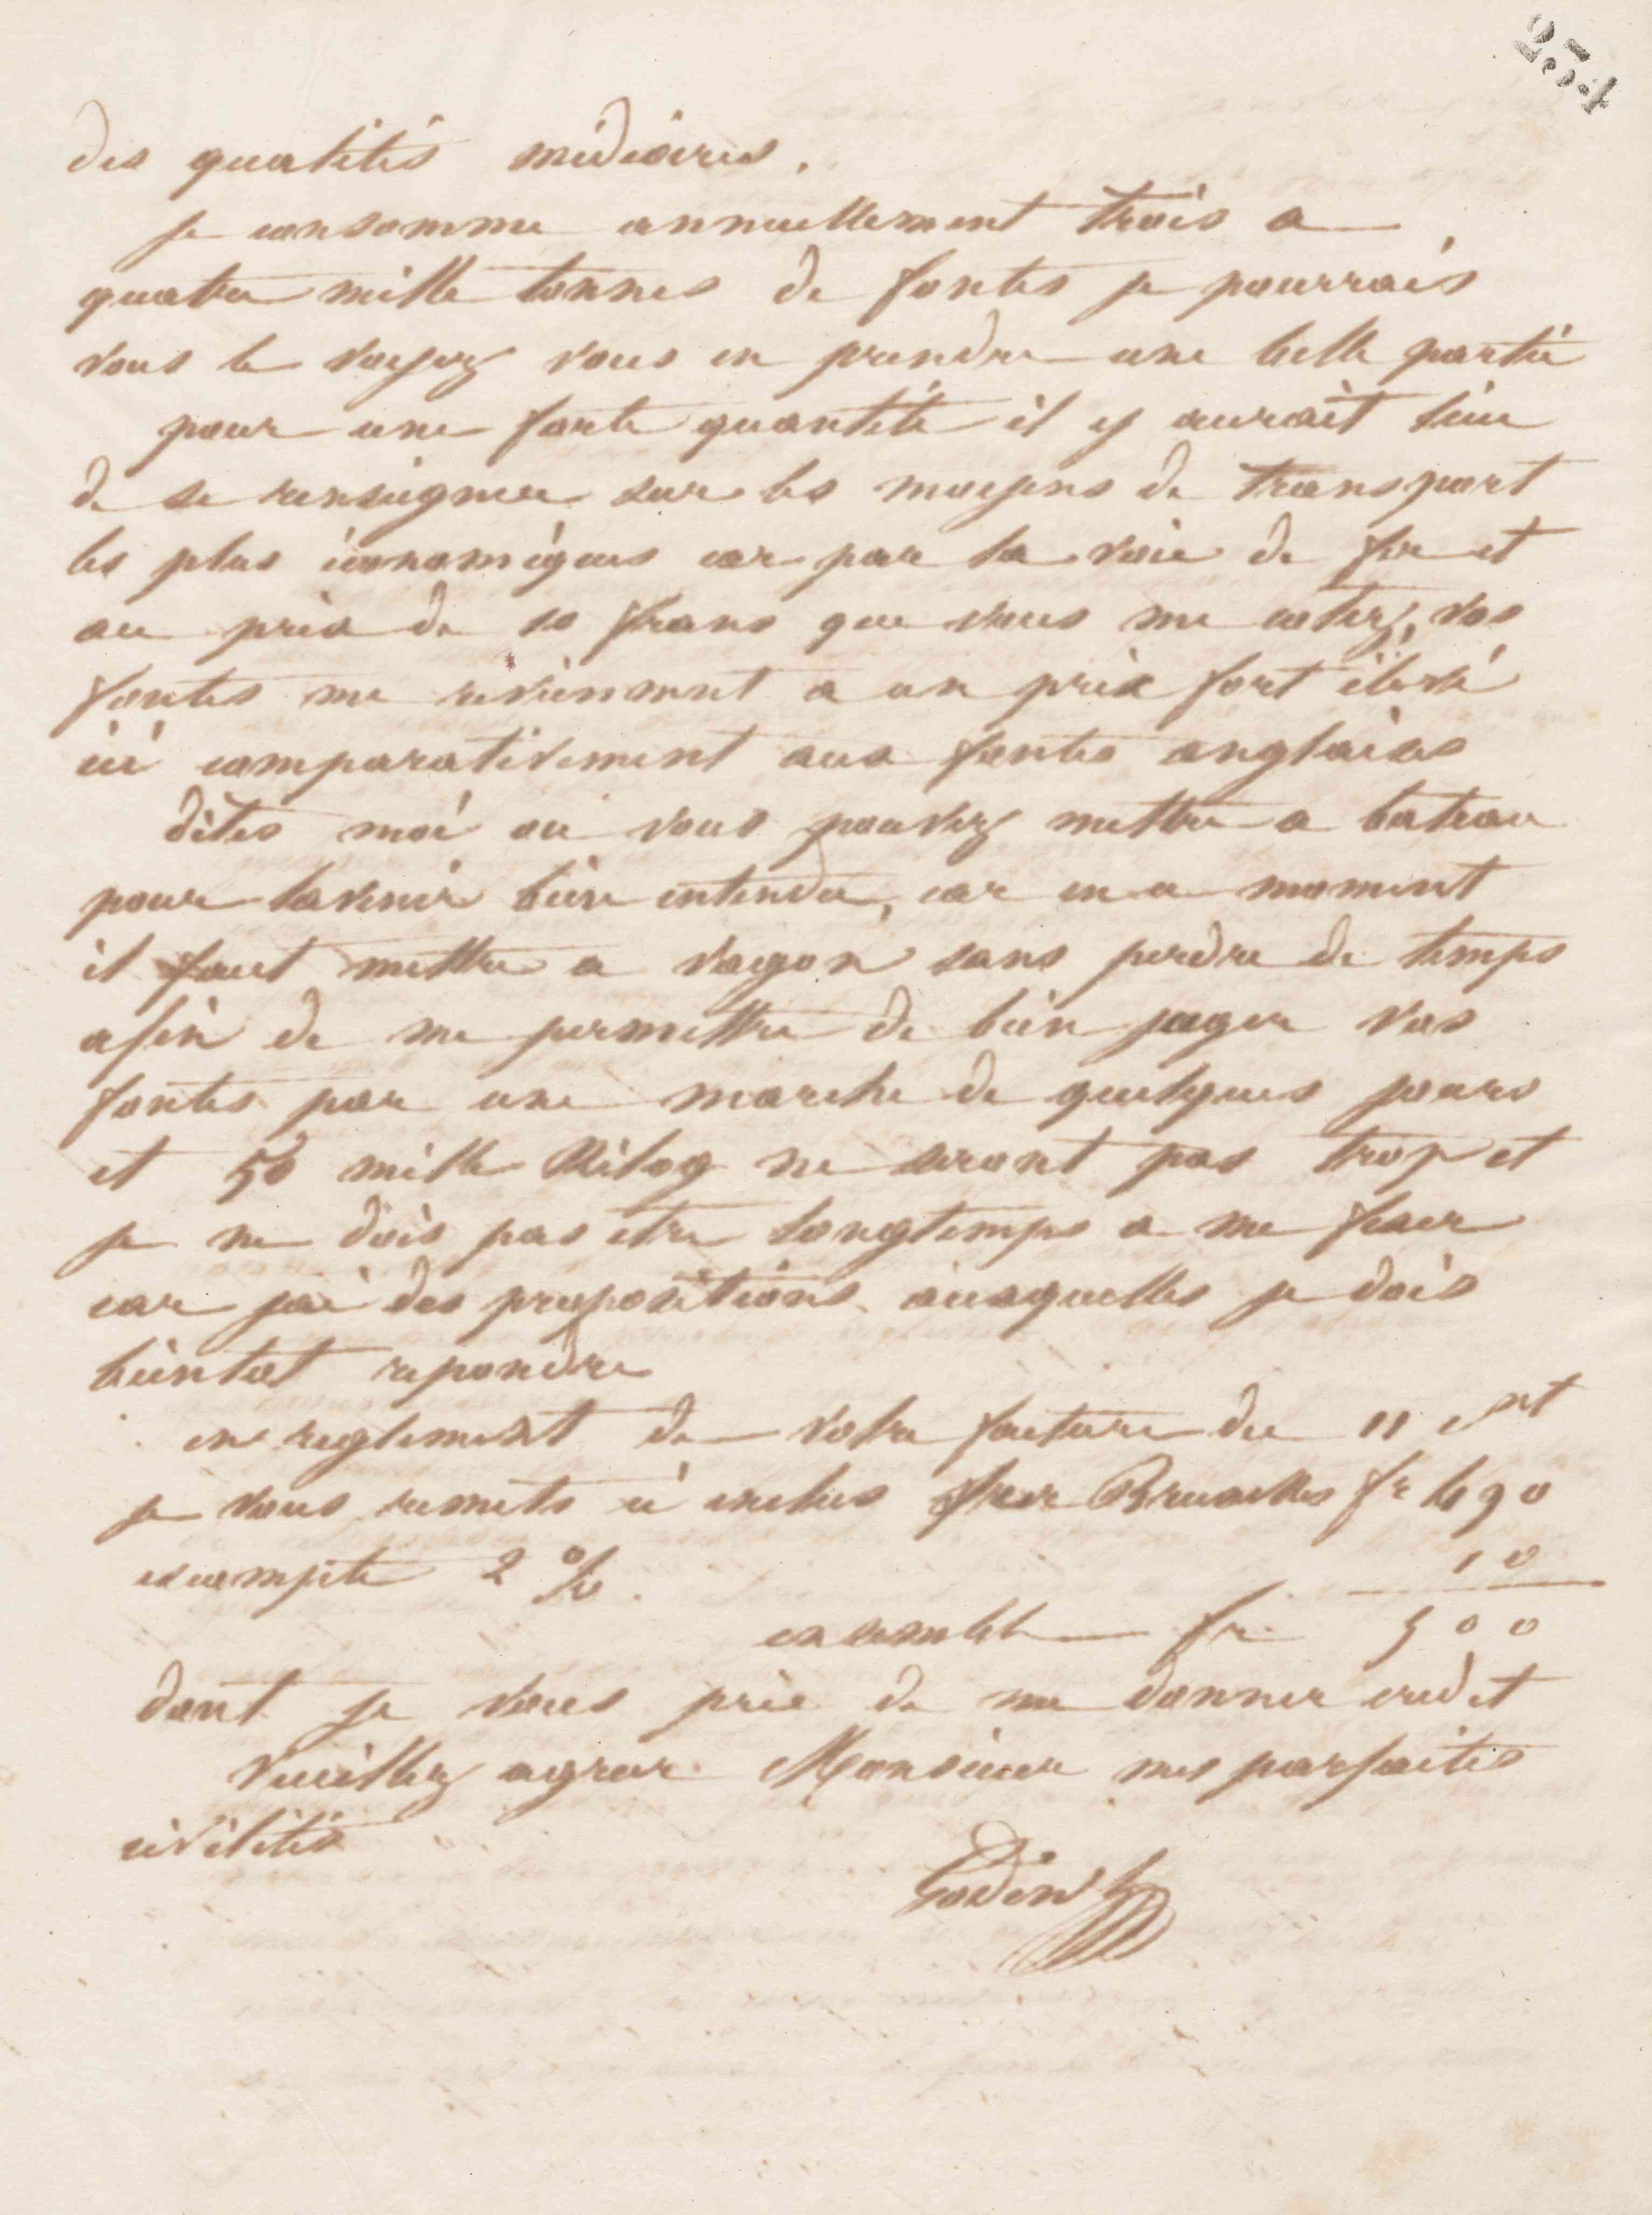 des qualités médiocres.
je consomme annuellement trois a
quatre mille tonnes de fontes je pourrais
vous le voyez vous en prendre une belle partie
pour une forte quantité il y aurait lieu
de se renseigner sur les moyens de transport
les plus économiques car par la voie de fer et
au prix de 10 francs que vous me cotez, vos
fontes me reviennent a un prix fort élevé
ici comparativement aux fontes anglaises
dites moi ou vous pouvez mettre a bateau
pour lavenir bien entendu, car en ce moment
il faut mettre a vagon sans perdre de temps
afin de me permettre de bien juger vos
fontes par une marche de quelques jours
et 50 mille Kilog ne seront pas trop et
je ne dois pas etre longtemps a me fixer
car jai des propositions auxquelles je dois
bientot repondre
en reglement de votre facture du 11 ct
je vous remets ci inclus sur Bruxelles fr 490
escompte 2 % 10
ensemble fr 500
dont je vous prie de me donner credit
Veuillez agreer Monsieur mes parfaites
civilités
Godin